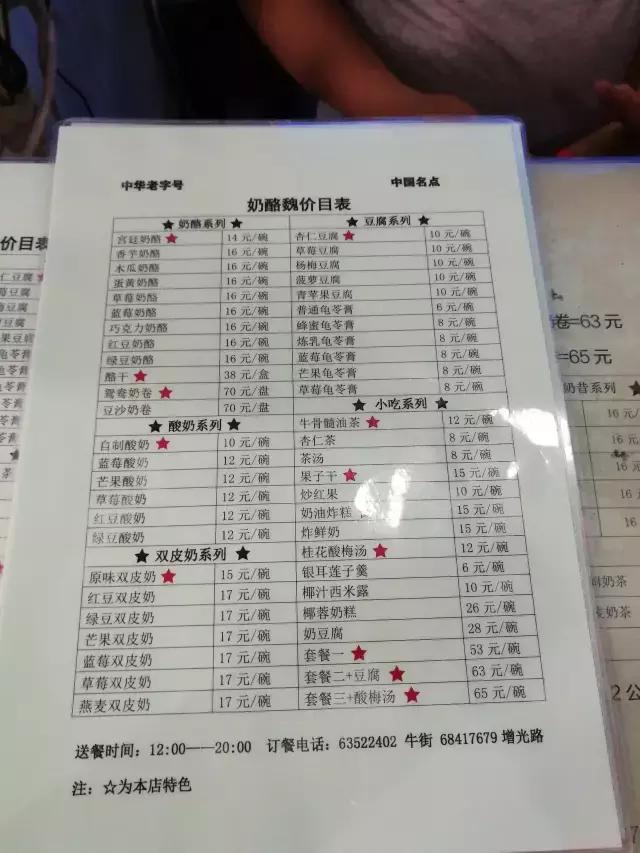 中华老字号 中国名点
奶酪魏价目表
★ 奶酪系列 ★
宫廷奶酪★ 14 元/碗
香芋奶酪 16 元/碗
木瓜奶酪 16 元/碗
蛋黄奶酪 16 元/碗
草莓奶酪 16 元/碗
蓝莓奶酪 16 元/碗
巧克力奶酪 16 元/碗
红豆奶酪 16 元/碗
绿豆奶酪 16 元/碗
酪干★ 38 元/盒
鸳鸯奶卷★ 70 元/盘
豆沙奶卷 70 元/盘
★ 酸奶系列 ★
自制酸奶★ 10 元/碗
蓝莓酸奶 12 元/碗
芒果酸奶 12 元/碗
草莓酸奶 12 元/碗
红豆酸奶 12 元/碗
绿豆酸奶 12 元/碗
★ 双皮奶系列 ★
原味双皮奶★ 15 元/碗
红豆双皮奶 17 元/碗
绿豆双皮奶 17 元/碗
芒果双皮奶 17 元/碗
蓝莓双皮奶 17 元/碗
草莓双皮奶 17 元/碗
燕麦双皮奶 17 元/碗
★ 豆腐系列 ★
杏仁豆腐★ 10 元/碗
草莓豆腐 10 元/碗
杨梅豆腐 10 元/碗
菠萝豆腐 10 元/碗
青苹果豆腐 10 元/碗
普通龟苓膏 6 元/碗
蜂蜜龟苓膏 8 元/碗
炼乳龟苓膏 8 元/碗
蓝莓龟苓膏 8 元/碗
芒果龟苓膏 8 元/碗
草莓龟苓膏 8 元/碗
★ 小吃系列 ★
牛骨髓油茶★ 12 元/碗
杏仁茶 8 元/碗
茶汤 8 元/碗
果子干★ 15 元/碗
炒红果 10 元/碗
奶油炸糕 15 元/碗
炸鲜奶 15 元/碗
桂花酸梅汤★ 12 元/碗
银耳莲子羹 6 元/碗
椰汁西米露 10 元/碗
椰蓉奶糕 26 元/碗
奶豆腐 28 元/碗
套餐一★ 53 元/碗
套餐二+豆腐★ 63 元/碗
套餐三+酸梅汤★ 65 元/碗
送餐时间：12:00——20:00 订餐电话：63522402 牛街 68417679 增光路
注：☆为本店特色
价目表
卷=63 元
=65 元
奶昔系列 ★
16 元/
16 元
16 元
16 元
奶茶
皮奶茶
2公